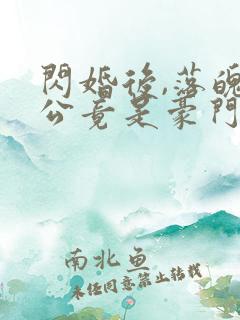 閃婚後,落魄
公竟是豪門
南北鱼
未经同意禁止转载